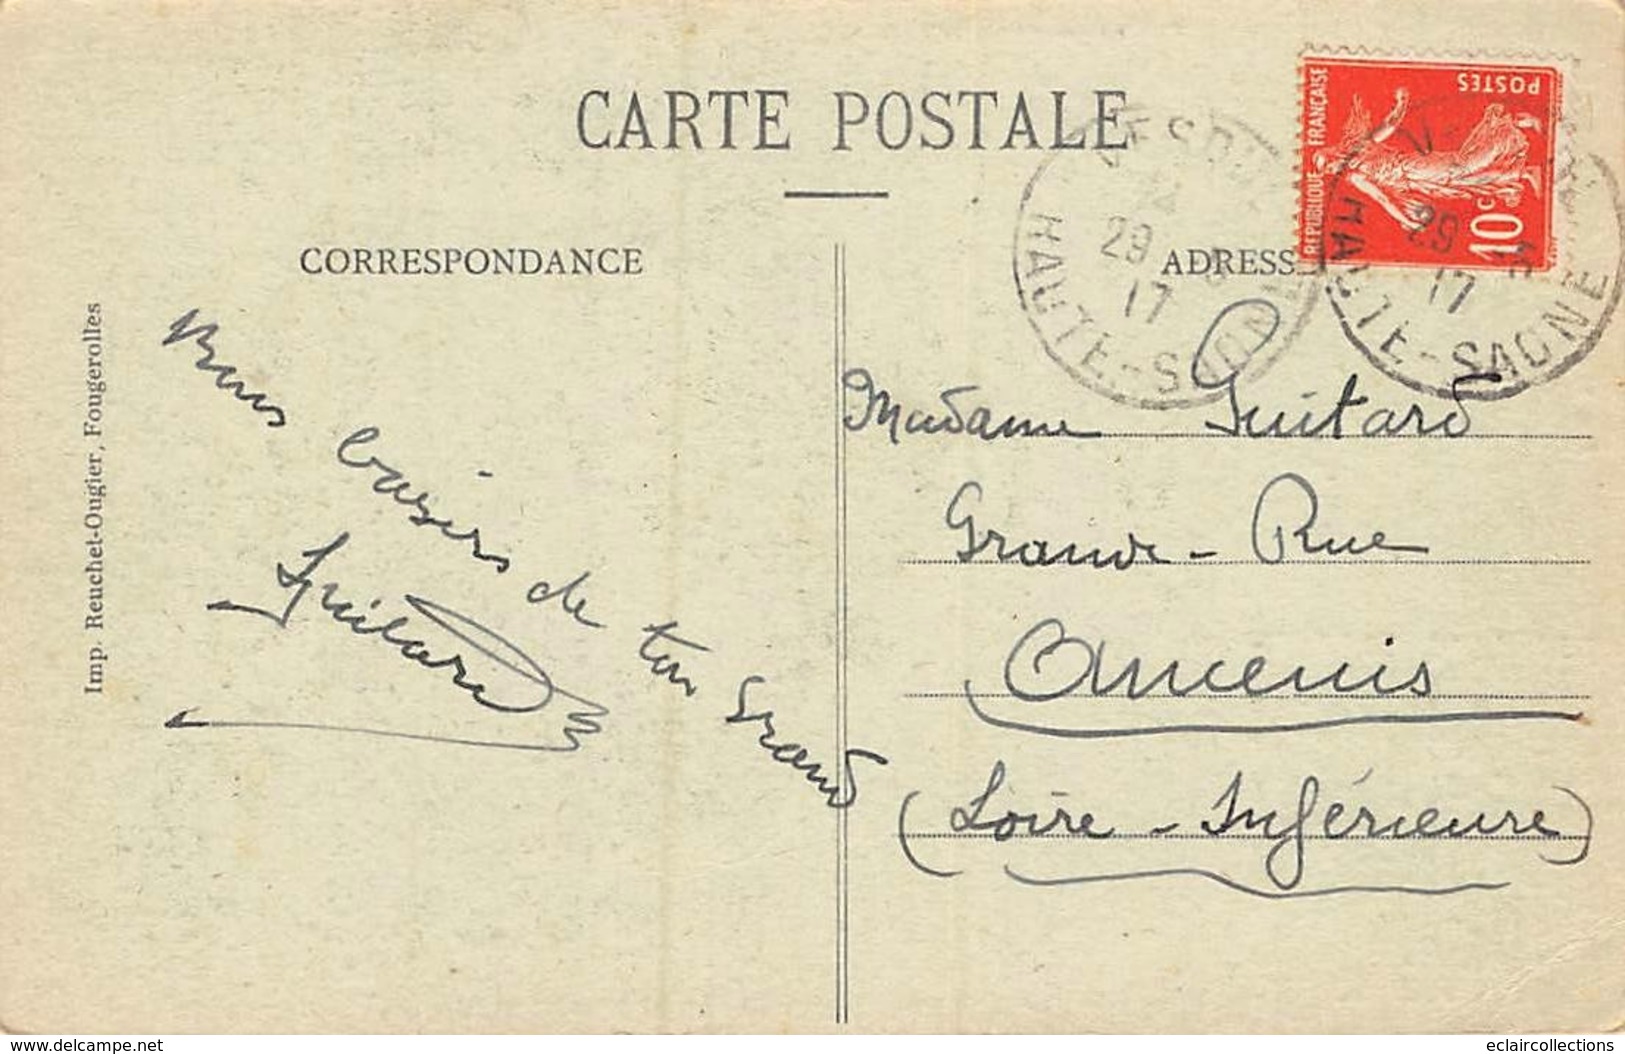 CARTE POSTALE
CORRESPONDANCE
ADRESSE
Imp. Reuchet-Ougier, Fougerolles
Bons baisers de ton grand
Guitard
Madame Guitard
Grande-Rue
Ancenis
(Loire-Inférieure)
REPUBLIQUE FRANÇAISE
POSTES
10c
VESOUL
29
17
HAUTE-SAONE
29
17
HAUTE-SAONE
www.delcampe.net
eclaircollections